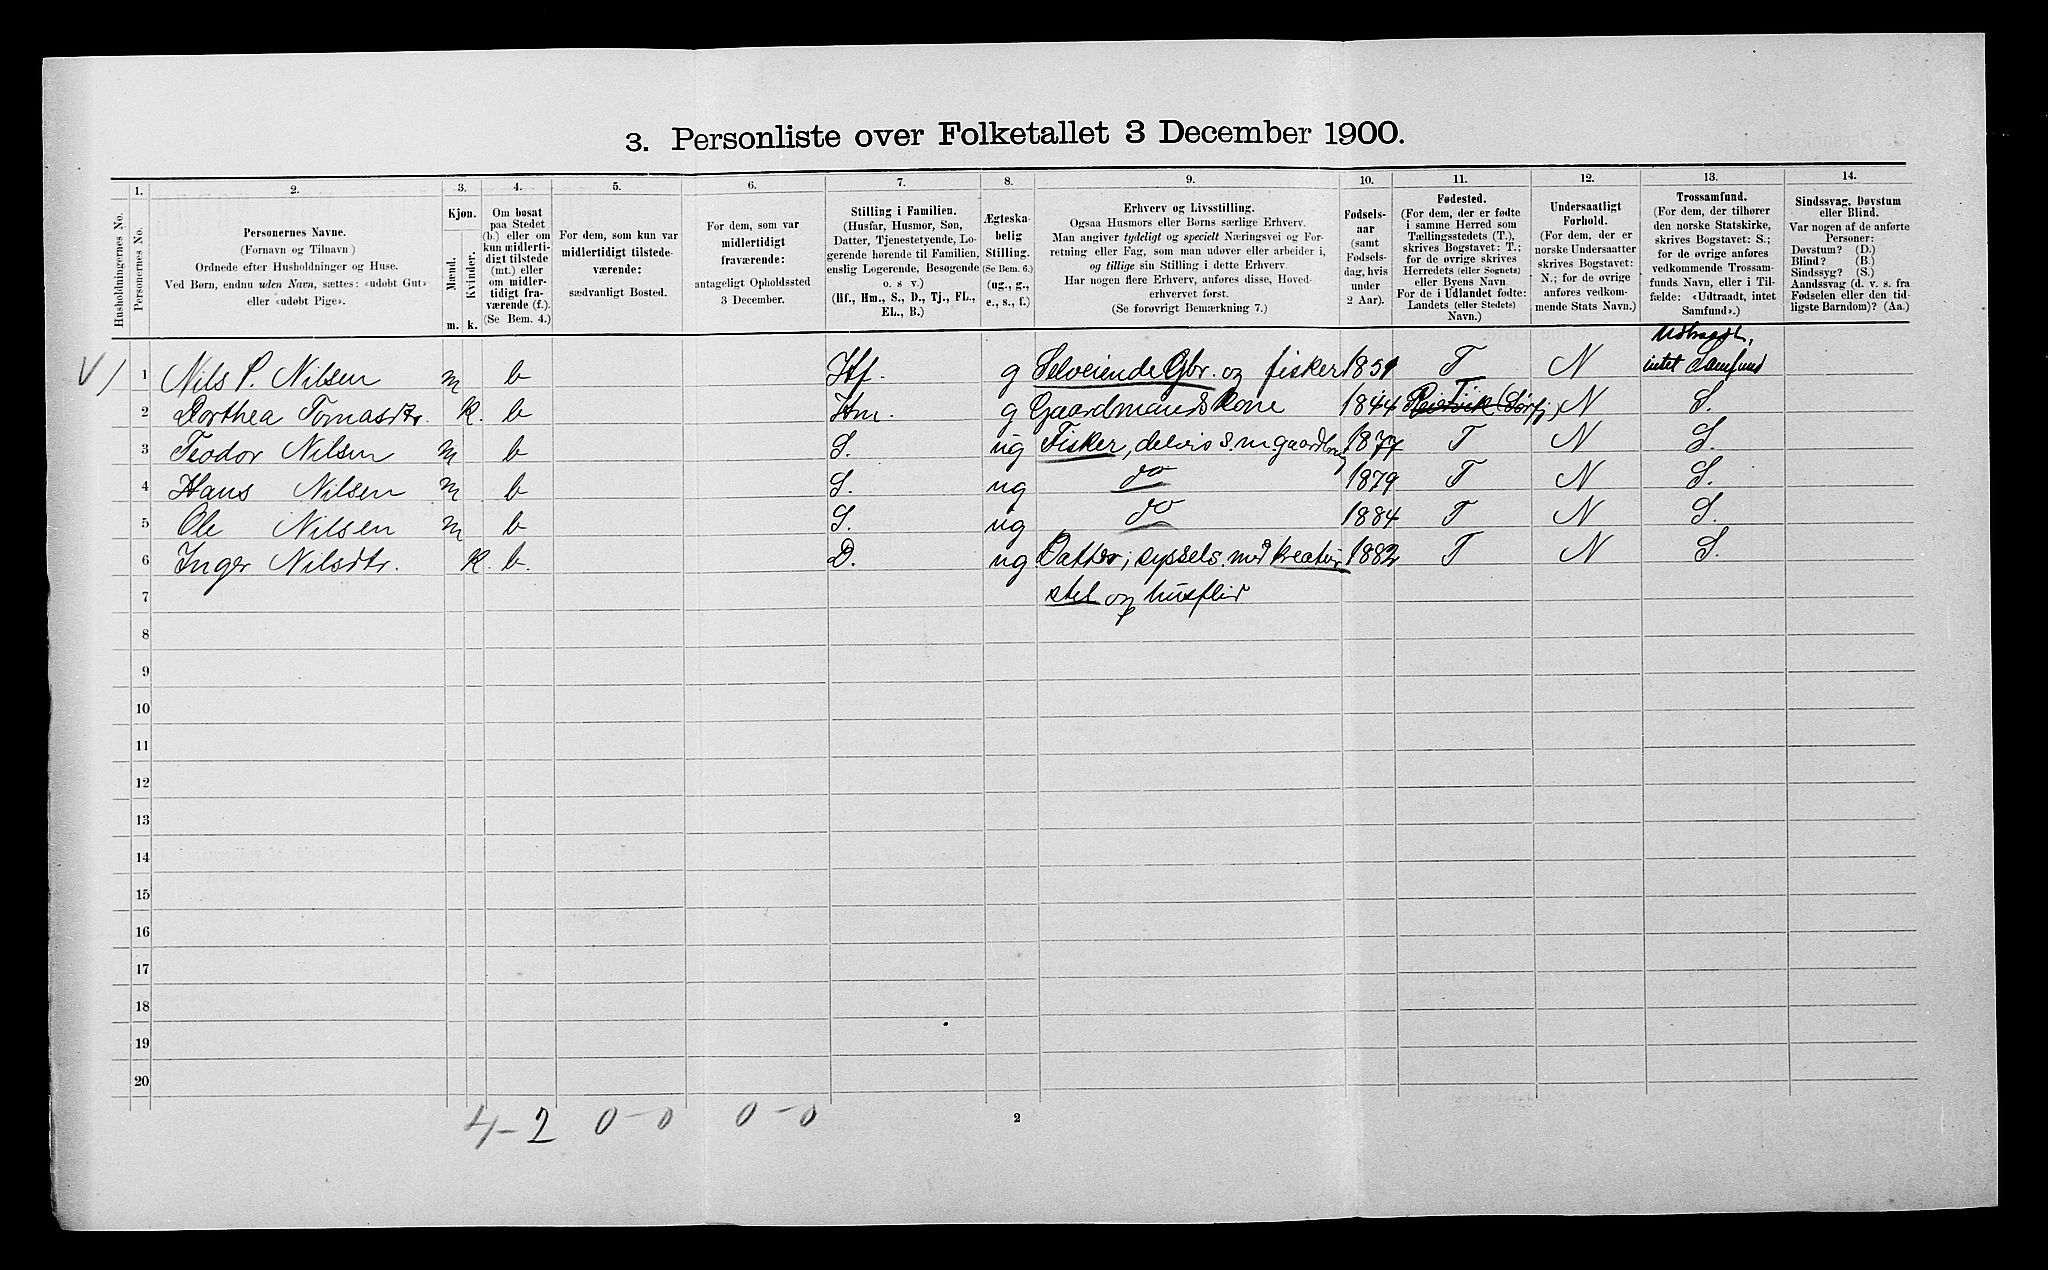 3. Personliste over Folketallet 3 December 1900.
Husholdningernes No.
1.
Personernes No.
2.
Personernes Navne.
(Fornavn og Tilnavn)
Ordnede efter Husholdninger og Huse.
Ved Børn, endnu uden Navn, sættes: «udøbt Gut»
eller «udøbt Pige».
3.
Kjøn.
Mænd.
Kvinder.
m. k.
4.
Om bosat
paa Stedet
(b.) eller om
kun midlerti-
digt tilstede
(mt.) eller
om midler-
tidigt fra-
værende (f.).
(Se Bem. 4.)
5.
For dem, som kun var
midlertidigt tilstede-
værende:
sædvanligt Bosted.
6.
For dem, som var
midlertidigt
fraværende:
antageligt Opholdssted
3 December.
7.
Stilling i Familien.
(Husfar, Husmor, Søn,
Datter, Tjenestetyende, Lo-
gerende hørende til Familien,
enslig Logerende, Besøgende
o. s v.)
(Hf., Hm., S., D., Tj., FL.,
EL., B.)
8.
Ægteska-
belig
Stilling.
(Se Bem. 6.)
(ug., g.,
e., s., f.)
9.
Erhverv og Livsstilling.
Ogsaa Husmors eller Børns særlige Erhverv.
Man angiver tydeligt og specielt Næringsvei og For-
retning eller Fag, som man udøver eller arbeider i,
og tillige sin Stilling i dette Erhverv.
Har nogen flere Erhverv, anføres disse, Hoved-
erhvervet først.
(Se forøvrigt Bemærkning 7.)
10.
Fødsels-
aar
(samt
Fødsels-
dag, hvis
under
2 Aar).
11.
Fødested.
(For dem, der er fødte
i samme Herred som
Tællingsstedets (T.),
skrives Bogstavet: T.;
for de øvrige skrives
Herredets (eller Sognets)
eller Byens Navn
For de i Udlandet fødte:
Landets (eller Stedets)
Navn.)
12.
Undersaatligt
Forhold.
(For dem, der er
norske Undersaatter
skrives Bogstavet:
N.; for de øvrige
anføres vedkom-
mende Stats Navn.)
13.
Trossamfund.
(For dem, der tilhører
den norske Statskirke,
skrives Bogstavet: S.;
for de øvrige anføres
vedkommende Trossam-
funds Navn, eller i Til-
fælde: «Udtraadt, intet
Samfund».)
14.
Sindssvag, Døvstum
eller Blind.
Var nogen af de anførte
Personer:
Døvstum? (D.)
Blind? (B.)
Sindssyg? (S.)
Aandssvag (d. v. s. fra
Fødselen eller den tid-
ligste Barndom)? (Aa.)
1 Nils P. Nilsen m b Hf. g Selveiende Gbr. og fisker 1851 T N Udtraadt, intet Samfund
2 Dorthea Tomasdtr. k. b Hm. g Gaardmands Kone 1844 T N S.
3 Teodor Nilsen m b S. ug Fisker, delvis s. m gaardbrug 1877 T N S.
4 Hans Nilsen m b S. ug do 1879 T N S.
5 Ole Nilsen m b S. ug do 1884 T N S.
6 Inger Nilsdtr. k. b. D. ug Datter, syssels. med kreatur 1882 T N S.
7 stel og husflid
8
9
10
11
12
13
14
15
16
17
18
19
20
4-2 0-0 0-0
2